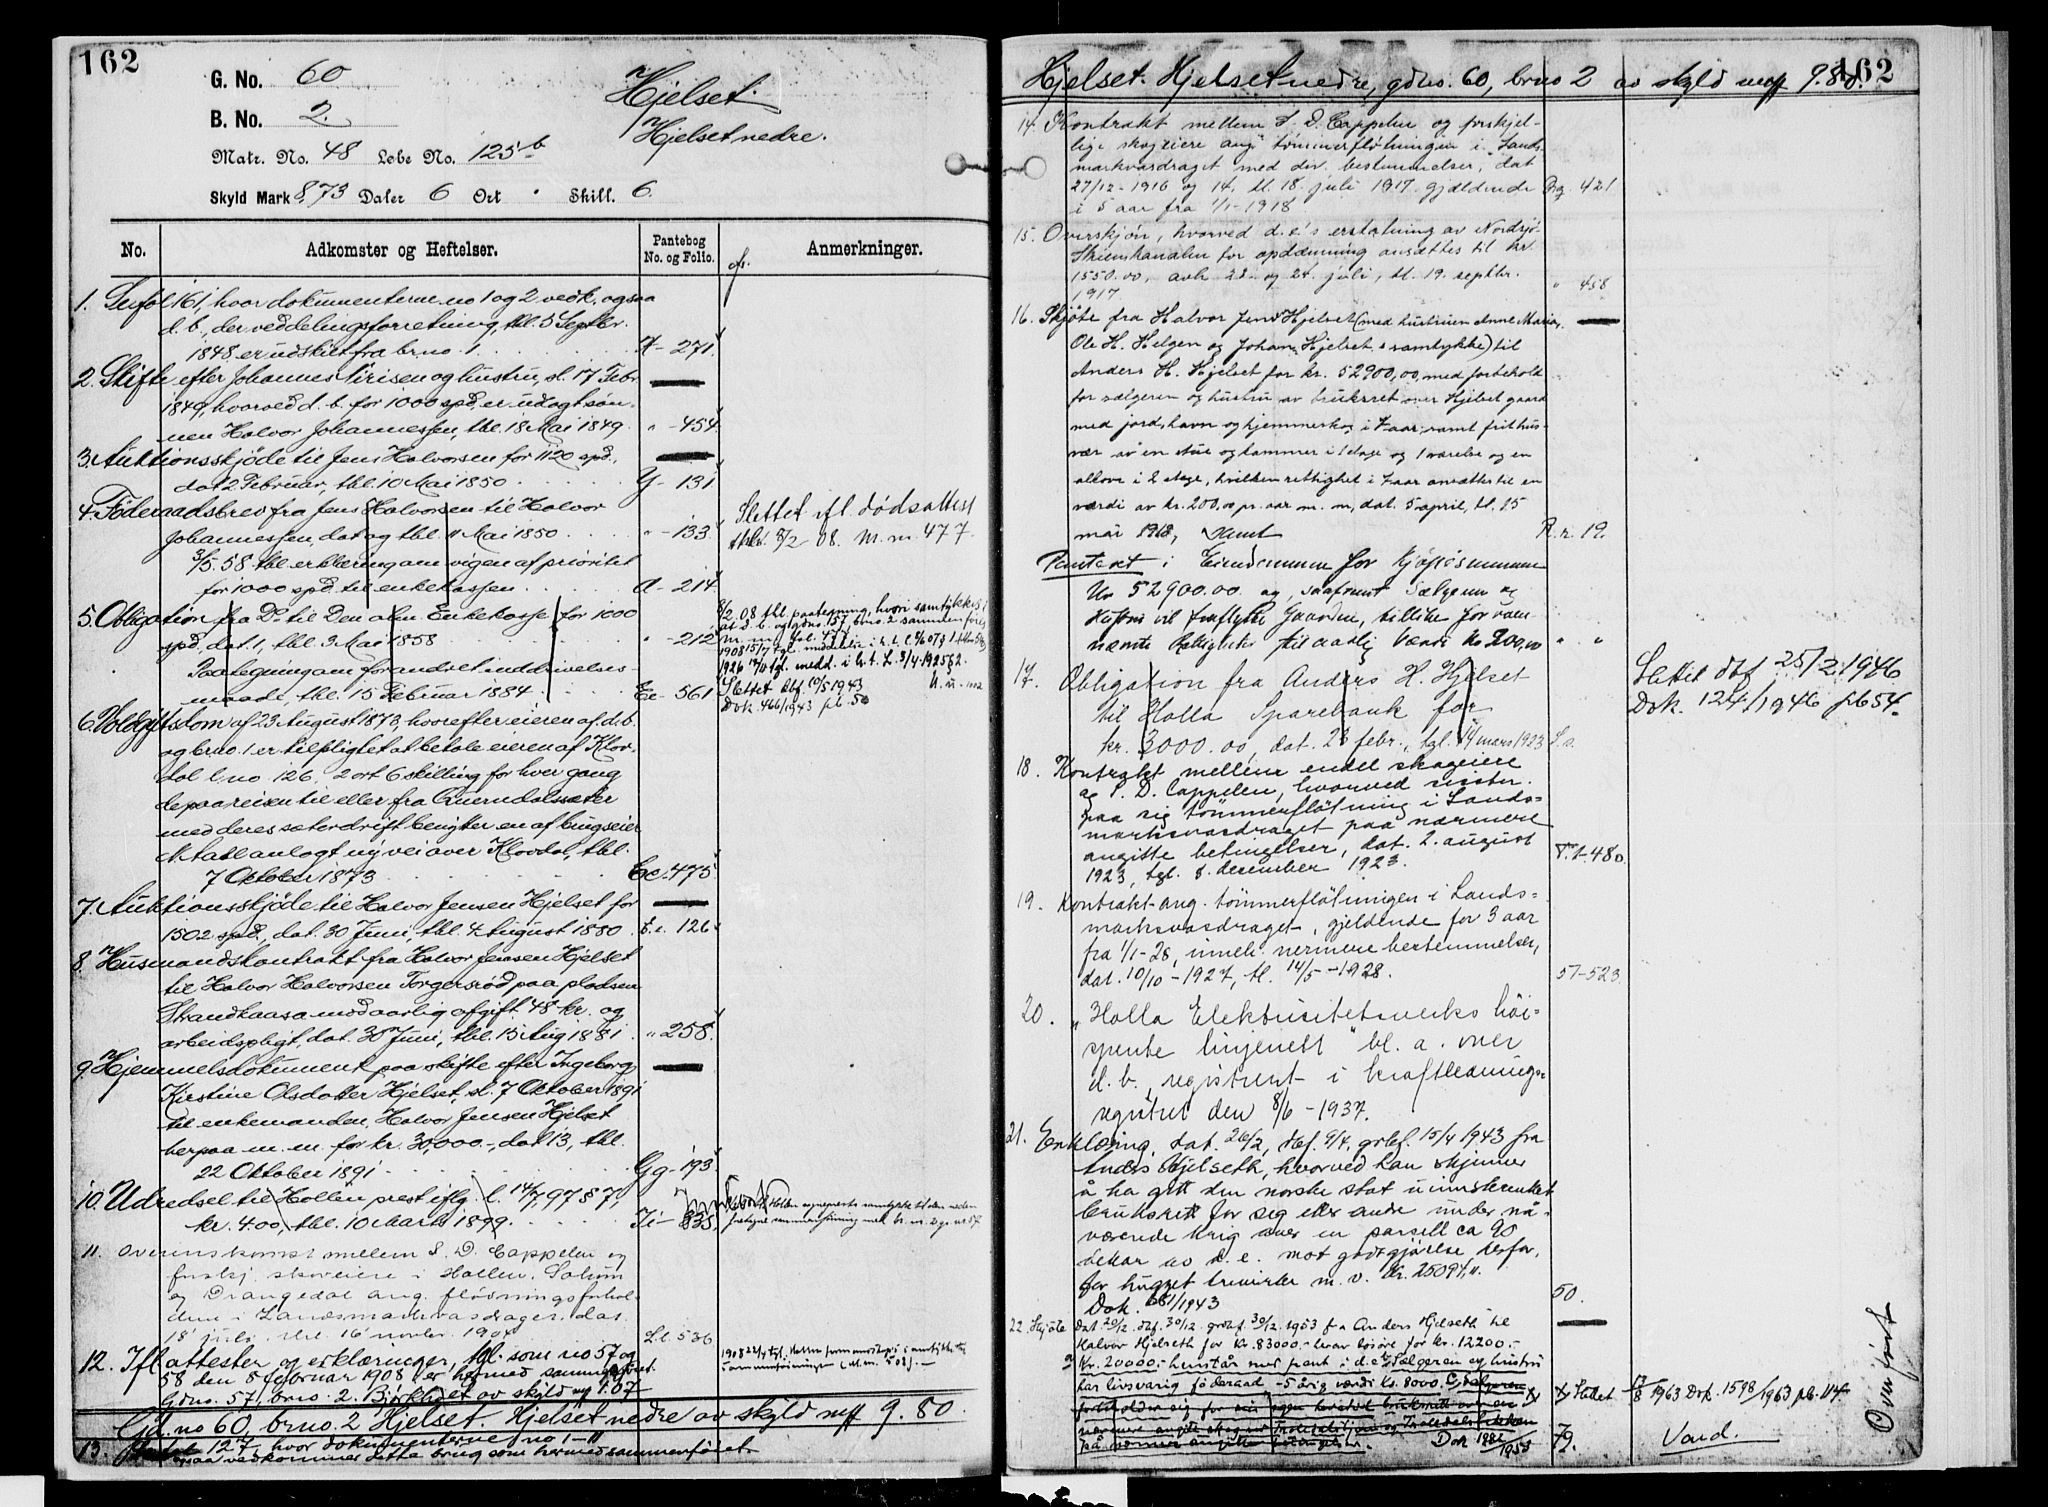 162
G. No. 60
B. No. 2.
Matr. No. 48 Løbe No. 125 b
Skyld Mark 8,73 Daler 6 Ort · Skill. 6.
Hjelset.
Hjelset nedre.
No. Adkomster og Heftelser. Pantebog No. og Folio. Anmerkninger.
1. Se fol 161, hvor dokumenterne no 1 og 2 vedk. ogsaa
d. b., der ved delingsforretning, thl. 5 Septbr.
1848 er udskilt fra brno. 1. 271
2. Skifte efter Johannes og hustru, sl. 17 Febr.
1849, hvorved d. b. for 1000 spd. er udlagt søn-
nen Halvor Johannessen, thl. 18 Mai 1849. " - 454
3. Auktionsskjøde til Jens Halvorsen for 1120 spd.,
dat 2 Februar, thl. 10 Mai 1850 Y - 131
4. Føderaadsbrev fra Jens Halvorsen til Halvor
Johannessen, dat og thl. 11 Mai 1850 " - 133
Slettet ifl. dødsattest
thl. 8/2 08. M. m. 477.
3/5. 58 thl. erklæring om vigen af prioritet
for 1000 spd. til enkekassen A - 214
5. Obligation fra Do til Den alm. Enkekasse for 1000
spd., dat. 1, thl. 3 Mai 1858 " - 212
Paategning om forandret inddrivelses-
maade, thl. 15 Februar 1884 Ee - 561
8/2 08 thl. paategning, hvori samtykkes i
at d. b. og gdno. 157, brno. 2 sammenføies
Slettet dbf. 10/5 1943
Dok. 466/1943 pb. 50
6. Voldgiftsdom af 23 August 1873, hvorefter eieren af d. b.
og brno. 1 er tilpligtet at betale eieren af Klov-
dal l. no 126, 2 ort 6 skilling for hver gang
de paa reisen til eller fra Querndalssæter
med deres sæterdrift benytter en af brugseier
anlagt ny vei over Klovdal, thl.
7 Oktober 1873 Cc - 475
7. Auktionsskjøde til Halvor Jensen Hjelset for
1502 spd., dat. 30 Juni, thl. 4 August 1880 Ee. 126
8. Husmandskontrakt fra Halvor Jensen Hjelset
til Halvor Halvorsen Torgersrød paa pladsen
Strandkaasa mod aarlig afgift 48 kr. og
arbeidspligt, dat. 30 Juni, thl. 15 Aug 1881 " 258
9. Hjemmelsdokument paa skifte efter Ingeborg
Kirstine Olsdatter Hjelset, sl. 7 Oktober 1891
til enkemanden, Halvor Jensen Hjelset
herpaa m. m. for kr. 30,000.-, dat 13, thl.
22 Oktober 1891 Gg - 193
10. Udredsel til Hollen prest iflg. l. 14/7, 97 § 7,
kr. 4.00, thl. 10 Marts 1899. Ii - 835
11. Overenskomst mellem S. D. Cappelen og
forskj. skoveiere i Hollen, Solum
og Drangedal ang. flødningsforhol-
dene i Landsmarkvasdraget, dat.
18 juli, thl. 16 novbr. 1904 Ll. 536
12. Ifl. attester og erklæringer, thl. som no 57 og
58 den 8 februar 1908 er hermed sammenføiet
Gdno. 57, brno. 2. Bjørkholt av skyld mrk 1.07
Gd. no 60, brno. 2 Hjelset. Hjelset nedre av skyld mrk 9. 80.
13. 127, hvor dokumenterne no 1-11
ogsaa vedkommer dette brug som hermed sammenføiet.
162
Hjelset. Hjelset nedre, gdno. 60, brno 2 av skyld mrk 9.80.
14. Kontrakt mellem S. D. Cappelen og forskjel-
lige skogeiere ang. tømmerfløtningen i Lands-
markvasdraget med div. bestemmelser, dat
27/12 - 1916 og 14, tl. 18. juli 1917, gjældende
i 5 aar fra 1/1 - 1918. 421
15. Overskjøn, hvorved d. e.'s erstatning av Nordsjø-
Skienskanalen for opdæmning ansættes til kr.
1550.00, avh. 23. og 24. juli, tl. 19. septbr.
1917. " 458
16. Skjøte fra Halvor Jens. Hjelset (med hustruen Anne Marie,
Ole H. Helgen og Johan Hjelset s samtykke) til
Anders H. Hjelset for kr. 52900,00, med forbehold
for sælgeren og hustru av bruksret over Hjelset gaard
med jord, havn og hjemmerskog i 7 aar, samt frit hus-
vær av en stue og kammer i 1 etage og 1 værelse og en
alkove i 2 etage, hvilken rettighet i 7 aar ansættes til en
værdi av kr. 200,00 pr. aar m. m, dat. 5 april, tl. 15
mai 1918, samt R. r. 19.
Panteret i Eiendommen for Kjøpesummen
Kr 52900.00 og, saafremt Sælgeren og
Hustru vil fraflytte Gaarden, tillike for oven-
nævnte Rettigheter til aarlig Værdi Kr 200,00 " "
17. Obligation fra Anders H. Hjelset
til Holla Sparebank for
kr. 3000.00, dat. 28 febr., tgl. 14 mars 1923
Slettet dbf 25/2 1946
Dok. 124/1946 pb 54.
18. Kontrakt mellem endel skogeiere
og S. D. Cappelen, hvorved sisstn.
paa sig tømmerfløtning i Lands-
marksvasdraget paa nærmere
angitte betingelser, dat. 2. august
1923, tgl. 8. desember 1923. 480.
19. Kontrakt ang. tømmerfløtningen i Lands-
marksvasdraget, gjeldende for 3 aar
fra 1/1-28, inneh. nermere bestemmelser,
dat. 10/10 - 1927, tl. 14/5 - 1928. 57-523
20. "Holla Elektrisitetsverks høi-
spente linjenett" bl. a. over
d. b., registrert i kraftlednings-
registret den 8/6 - 1937.
21. Erklæring, dat. 26/2, dbf. 9/4, grbf. 15/4 1943 fra
Anders Hjelseth, hvorved han skjønner
å ha gitt den norske stat uinnskrenket
bruksrett for seg eller andre under nå-
værende krig over en parsell ca 90
dekar av d. e. mot godtgjørelse derfor,
for hugget trevirke m. v. kr. 25094,11.
Dok. 1943 50.
22. Skjøte dat 20/12. dbf. 30/12. grbf. 30/12. 1953 fra Anders Hjelseth til
Halvor Hjelseth for kr. 83000.- herav løsøre for kr. 12200.-
Kr. 20000.- henstår mot pant i d. e. Selgeren og hustru
har livsvarig føderaad - 5 årig værdi kr. 8000. Selgeren
forbeholder sig for
Dok 1953 79.
x) Slettet 1963 Dok. 1598/1963 pb. 114.
Vend.
Overført